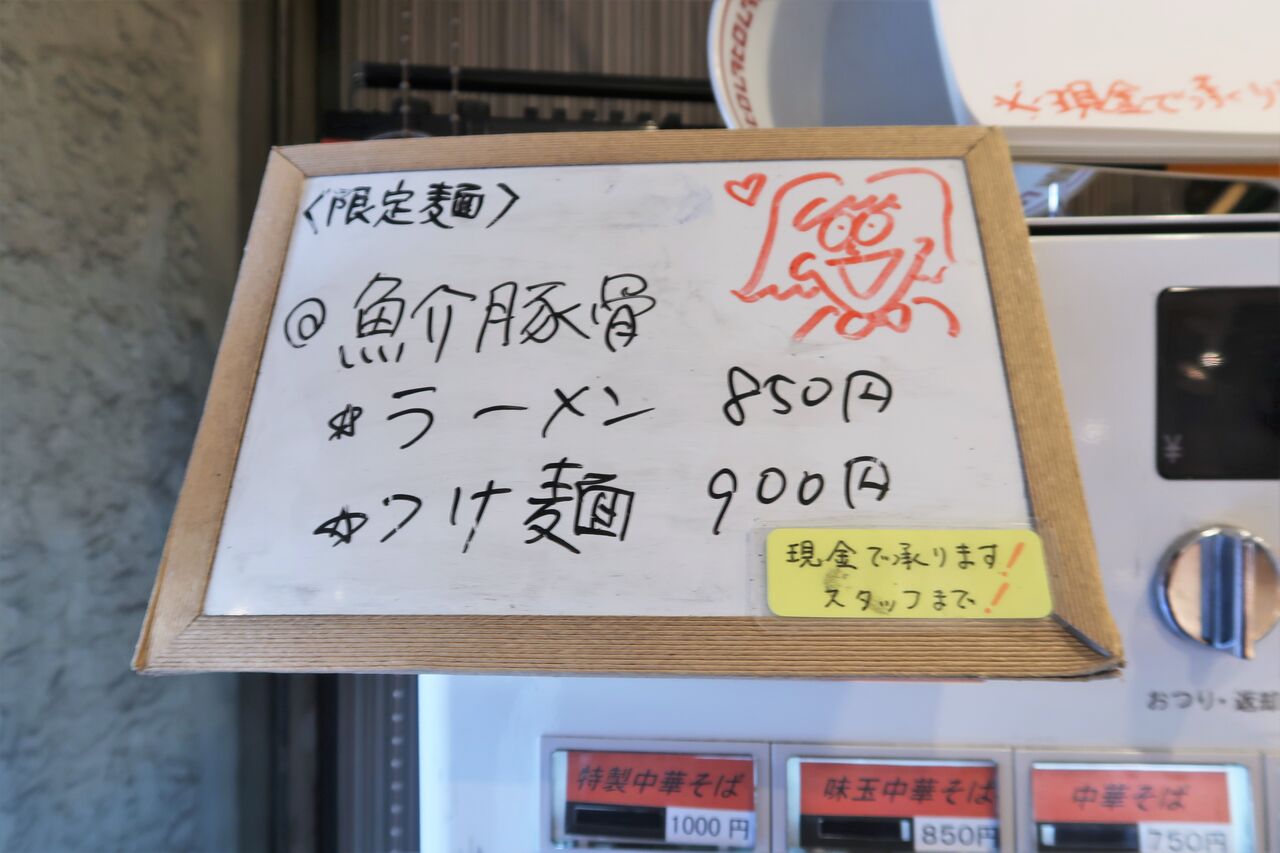 ※現金で承り
〈限定麺〉
@魚介豚骨
☆ラーメン 850円
☆つけ麺 900円
現金で承ります!
スタッフまで!
¥
おつり・返却
特製中華そば
1000円
味玉中華そば
850円
中華そば
750円